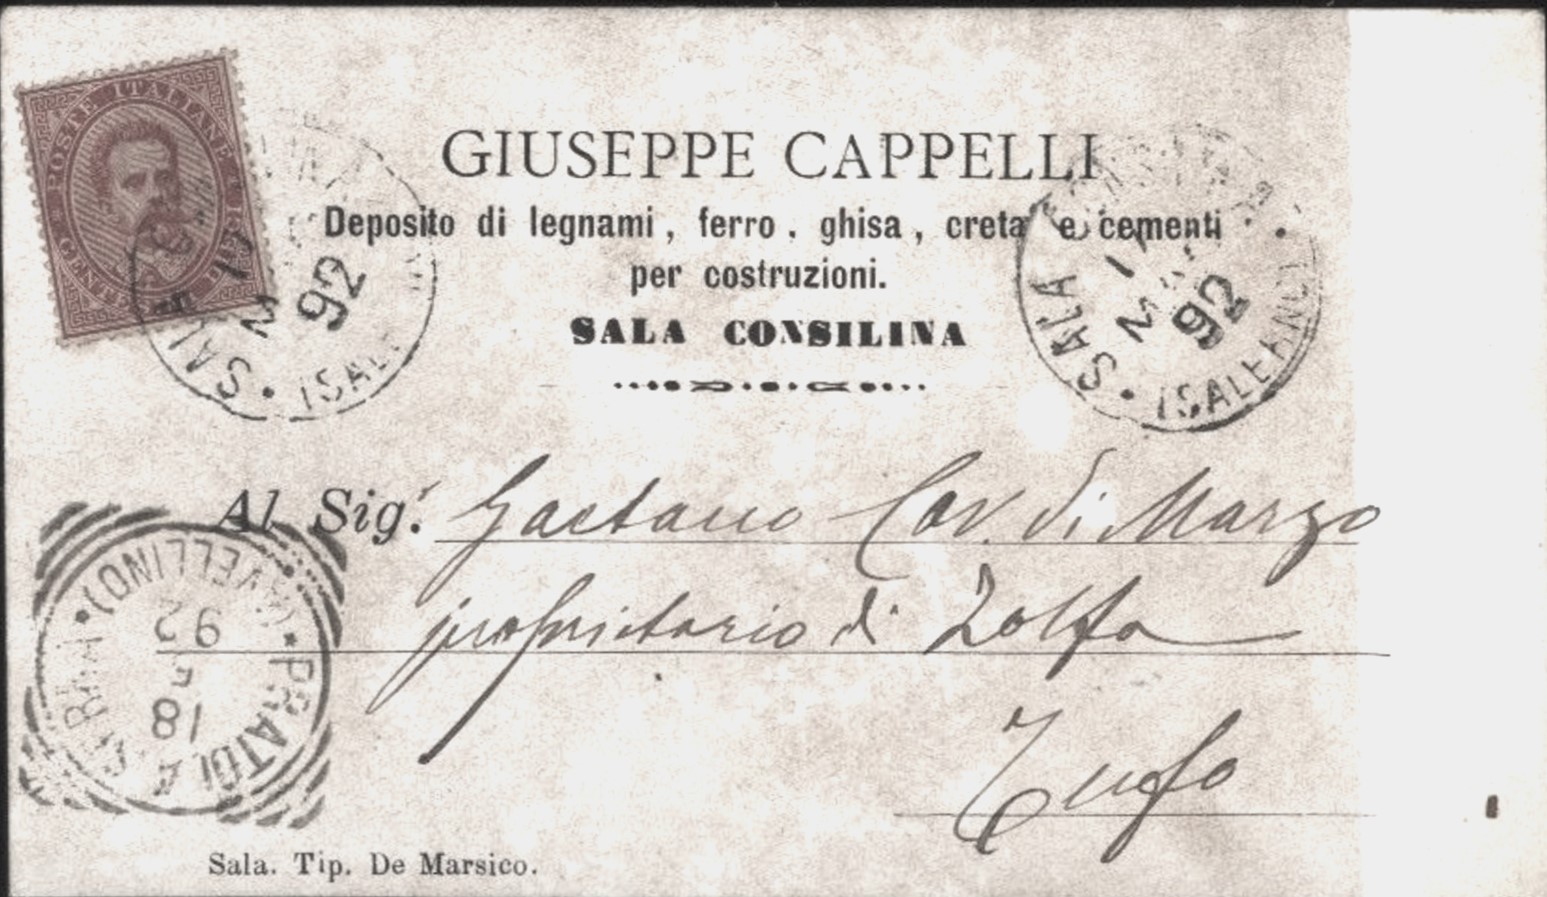 POSTE ITALIANE
GIUSEPPE CAPPELLI
Deposito di legnami, ferro, ghisa, creta e cementi
per costruzioni.
SALA CONSILINA
SALA
92
(SALERNO)
SALA
92
(SALERNO)
Al Sig.r Gaetano Cav. di Marzo
proprietario di Zolfa
Tufo
(AVELLINO)
PRATOLA
18
92
Sala. Tip. De Marsico.